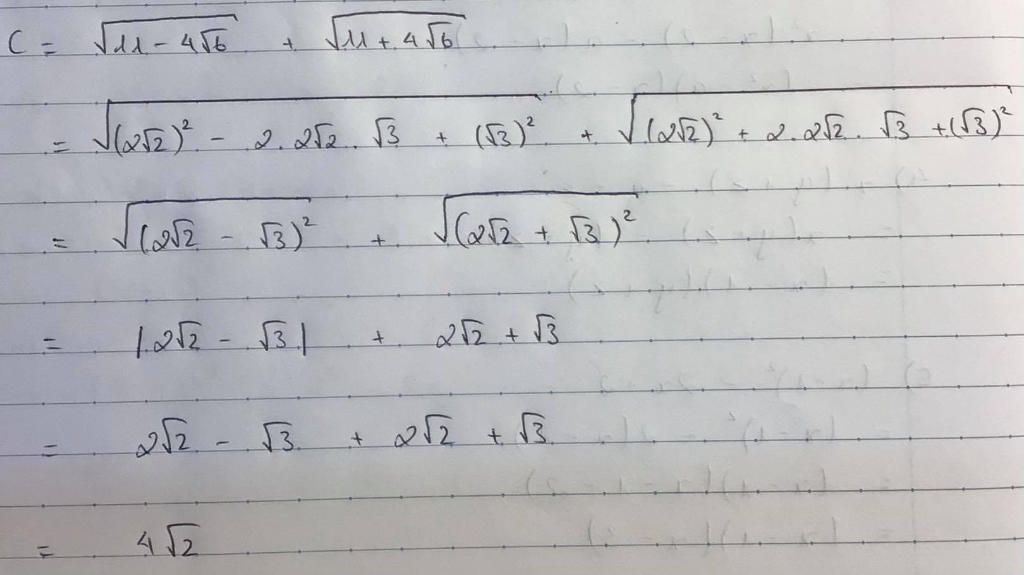 C = √(11 - 4√6) + √(11 + 4√6)
= √((2√2)² - 2.2√2.√3 + (√3)²) + √((2√2)² + 2.2√2.√3 + (√3)²)
= √((2√2 - √3)²) + √((2√2 + √3)²)
= |2√2 - √3| + 2√2 + √3
= 2√2 - √3 + 2√2 + √3
= 4√2